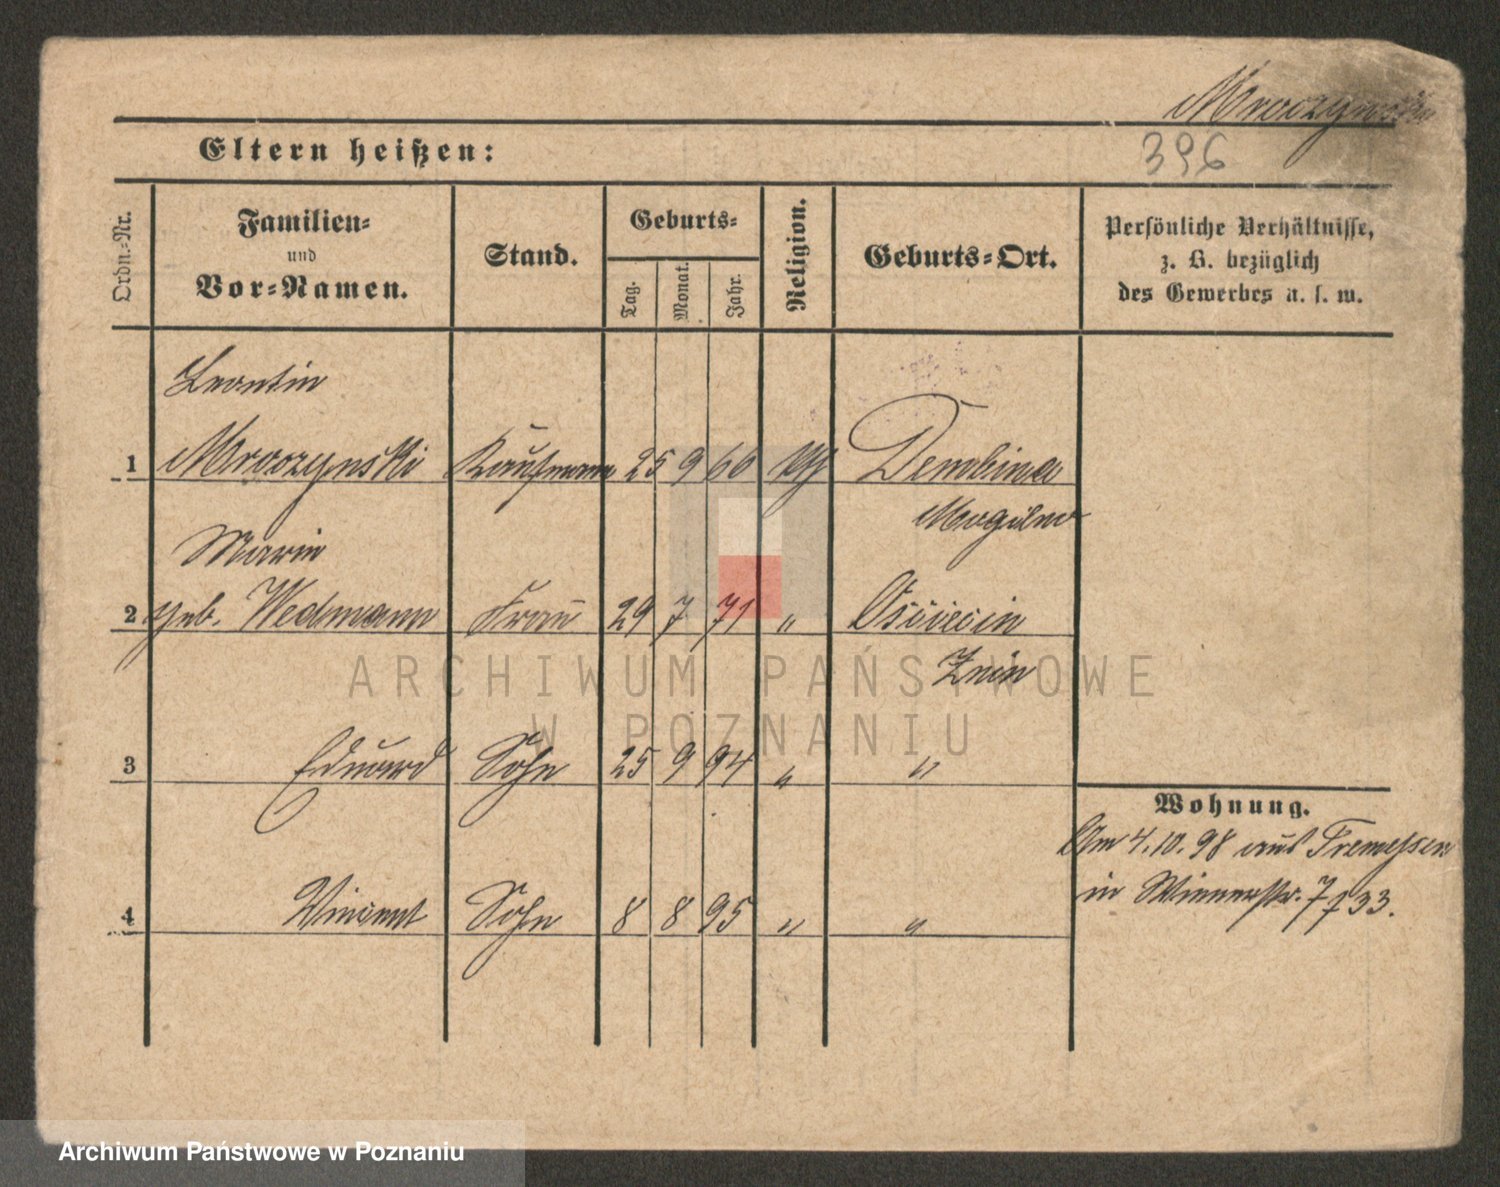 Mroczynski
396
Eltern heißen:
Ordn.-Nr.
Familien-
und
Vor-Namen.
Stand.
Geburts-
Tag.
Monat.
Jahr.
Religion.
Geburts-Ort.
Persönliche Verhältnisse,
z. B. bezüglich
des Gewerbes u. s. w.
Leontin
1 Mroczynski Kaufmann 25 9 66 Dembina
Mogilno
Marie
2 geb. Wedmann Frau 29 7 71 " Ościecin
Znin
3 Eduard Sohn 25 9 94 " "
4 Vincent Sohn 8 8 95 " "
Wohnung.
Am 4.10.98 aus Tremessen
in Wienerstr. 7 f 33.
ARCHIWUM PAŃSTWOWE
W POZNANIU
Archiwum Państwowe w Poznaniu